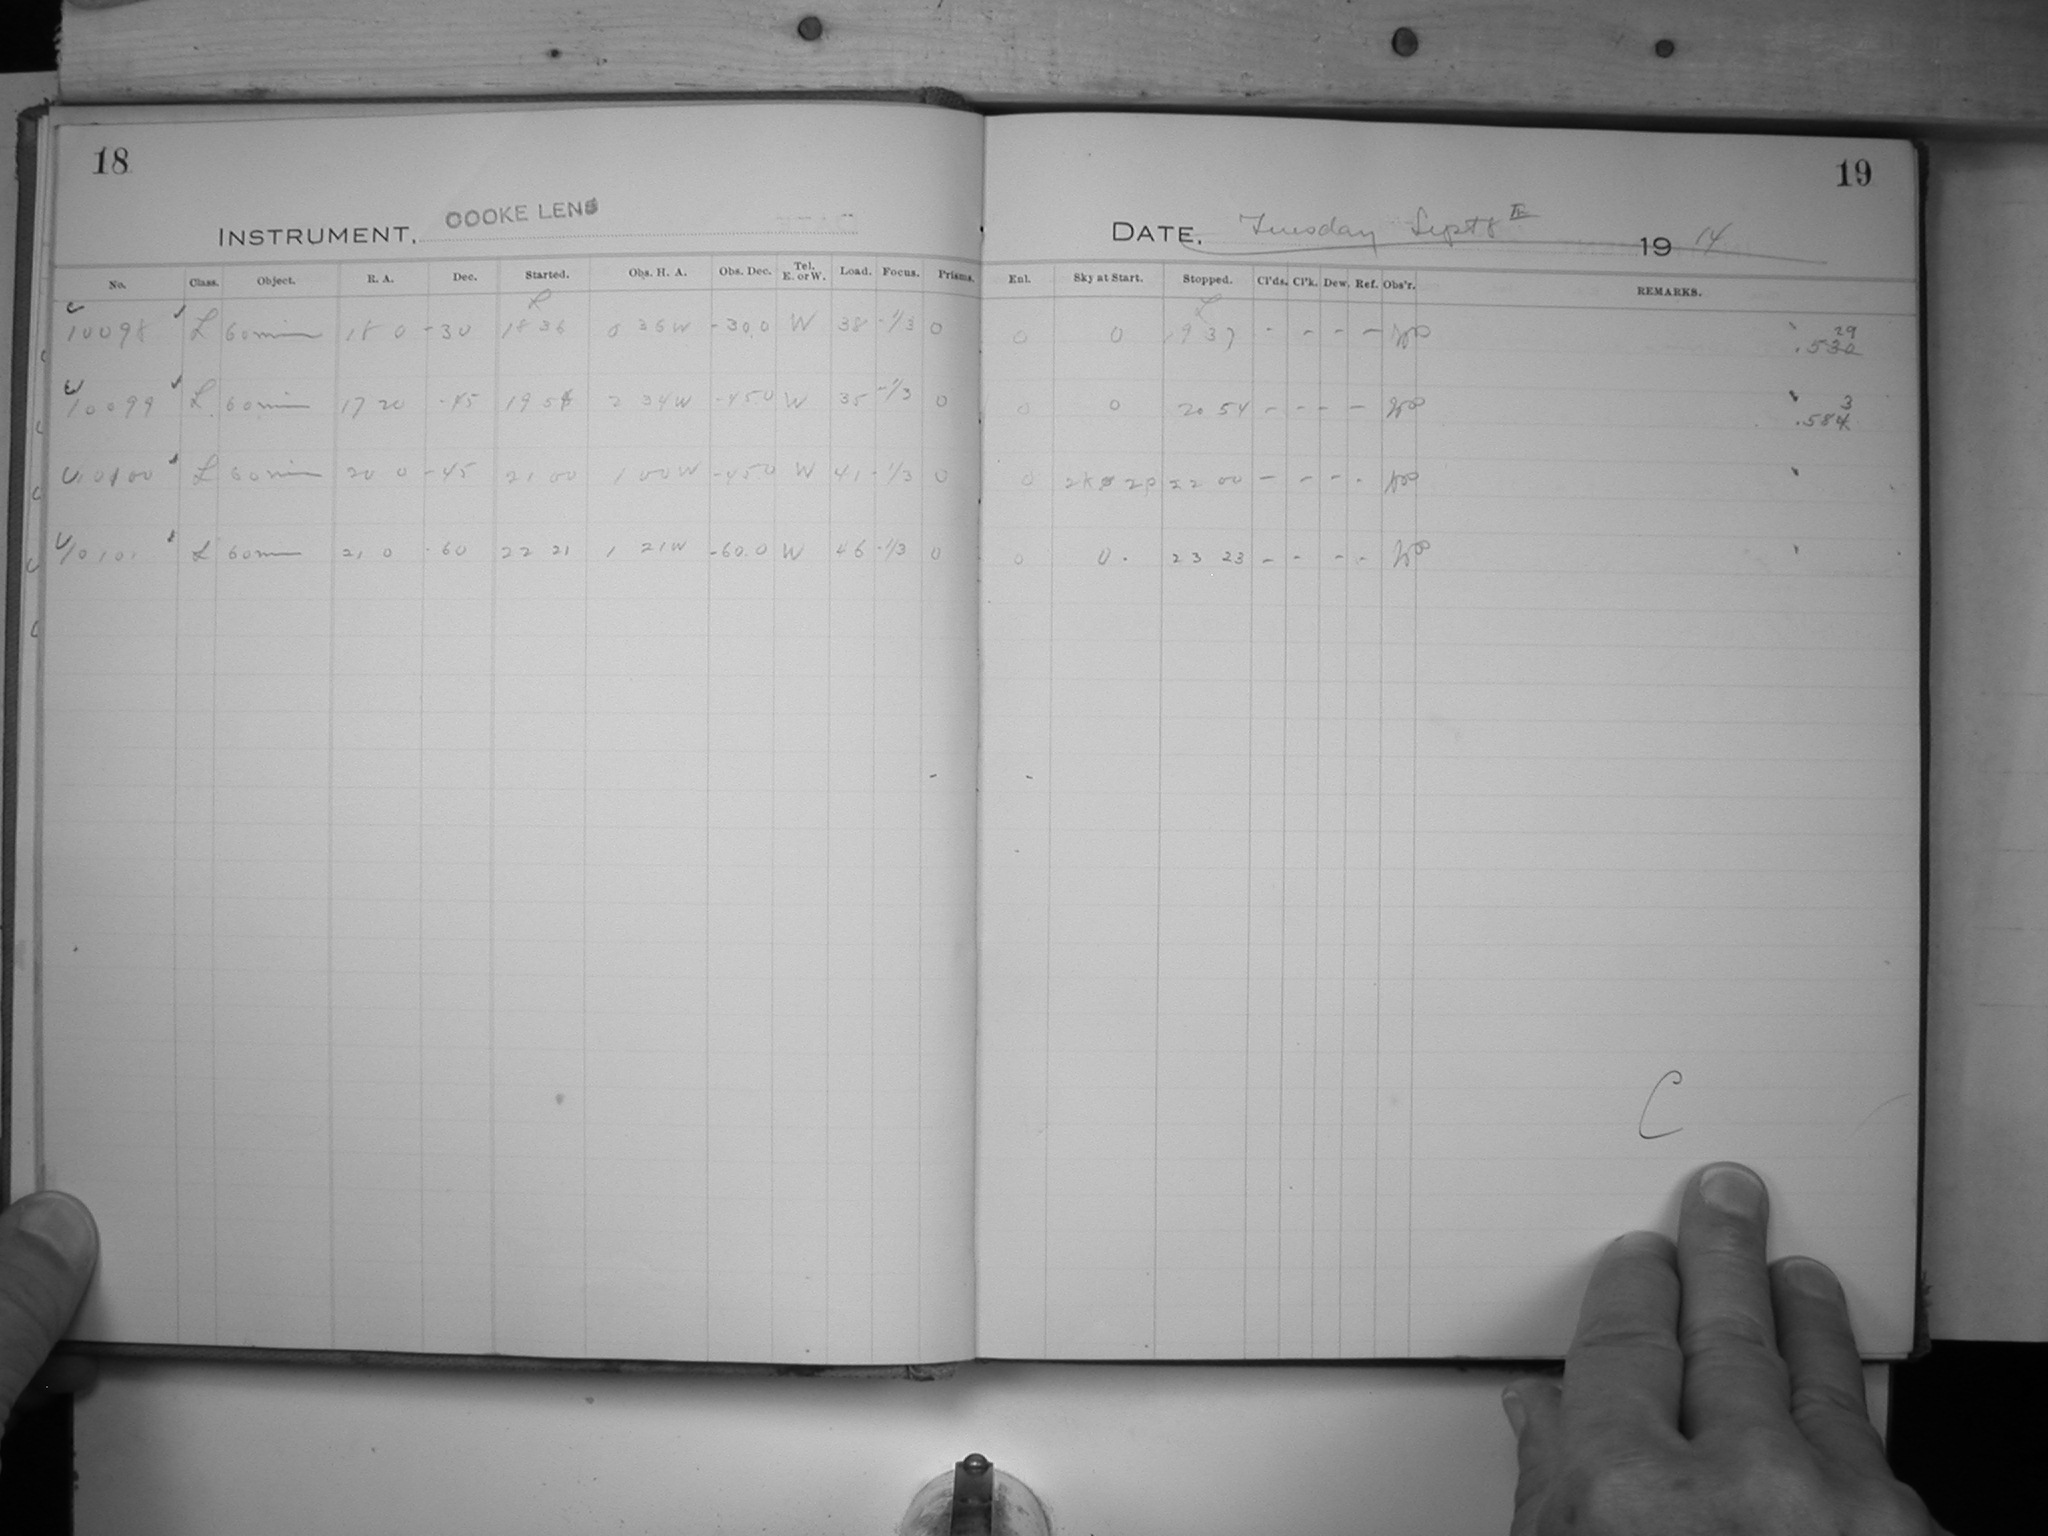 18
19
INSTRUMENT, COOKE LENS
DATE, Tuesday Sept 8th 1914
No. Class. Object. R. A. Dec. Started. Obs. H. A. Obs. Dec. Tel. E. or W. Load. Focus. Prisms. Enl. Sky at Start. Stopped. Cl'ds. Cl'k. Dew. Ref. Obs'r. REMARKS.
10098 L 60 min 18 0 -30 18 36 0 36 W -30.0 W 38 -1/3 0 0 0 19 37 - - - - 29 .530
10099 L 60 min 17 20 -45 19 54 2 34 W -45.0 W 35 -1/3 0 0 0 20 54 - - - - 3 .584
10100 L 60 min 20 0 -45 21 00 1 00 W -45.0 W 41 -1/3 0 0 22 00 - - - -
10101 L 60 min 21 0 -60 22 21 1 21 W -60.0 W 46 -1/3 0 0 0. 23 23 - - - -
C